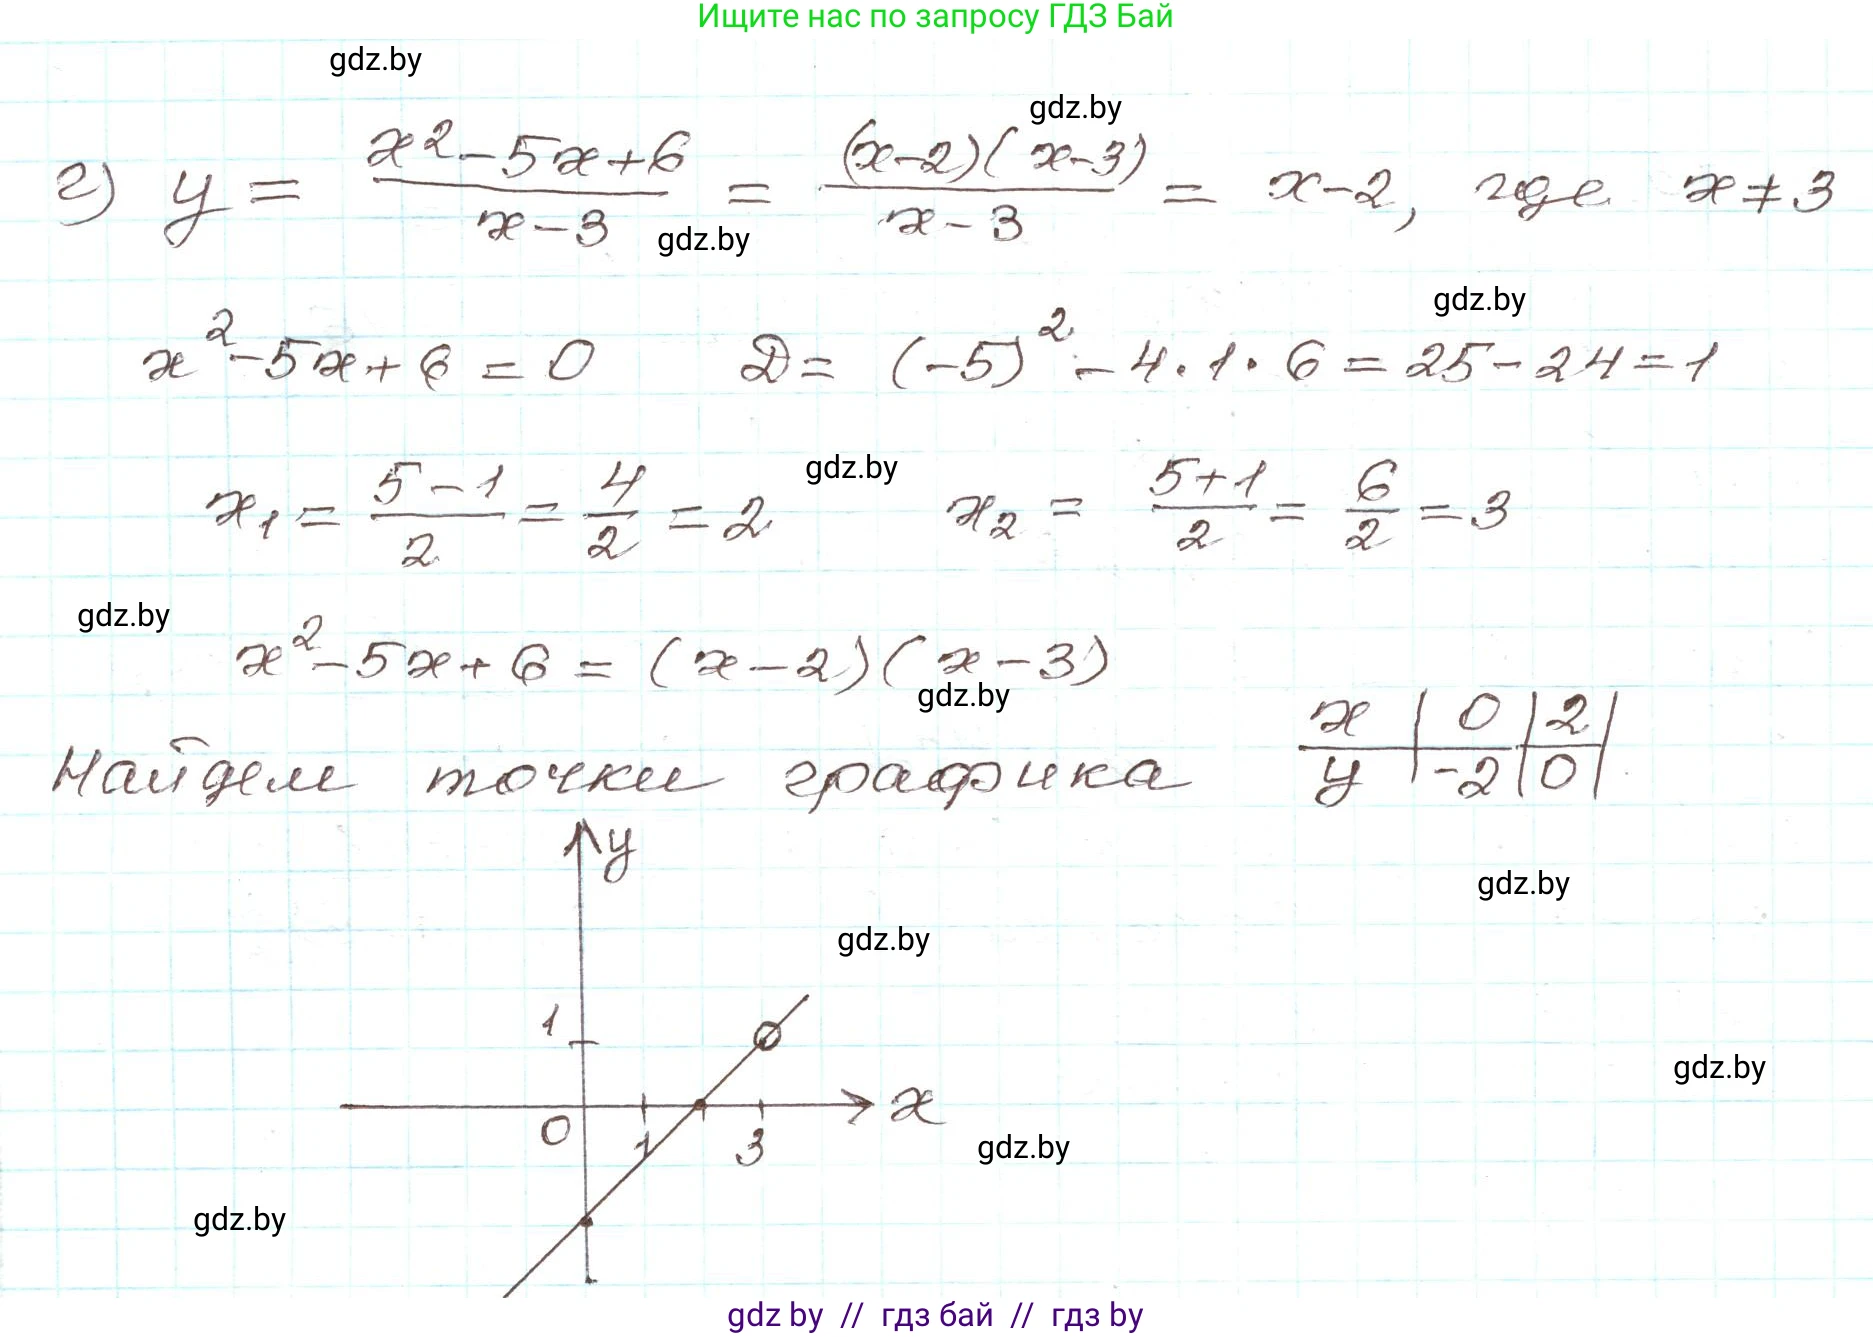 Ищите нас по запросу ГДЗ Бай
gdz.by
gdz.by
г) y = (x² - 5x + 6)/(x - 3) = ((x - 2)(x - 3))/(x - 3) = x - 2, где x ≠ 3
gdz.by
gdz.by
x² - 5x + 6 = 0 D = (-5)² - 4 · 1 · 6 = 25 - 24 = 1
gdz.by
x₁ = (5 - 1)/2 = 4/2 = 2 x₂ = (5 + 1)/2 = 6/2 = 3
gdz.by
x² - 5x + 6 = (x - 2)(x - 3)
gdz.by
Найдем точки графика
x | 0 | 2 |
y | -2 | 0 |
y
gdz.by
gdz.by
1
gdz.by
x
0 1 3
gdz.by
gdz.by
gdz by // гдз бай // гдз by